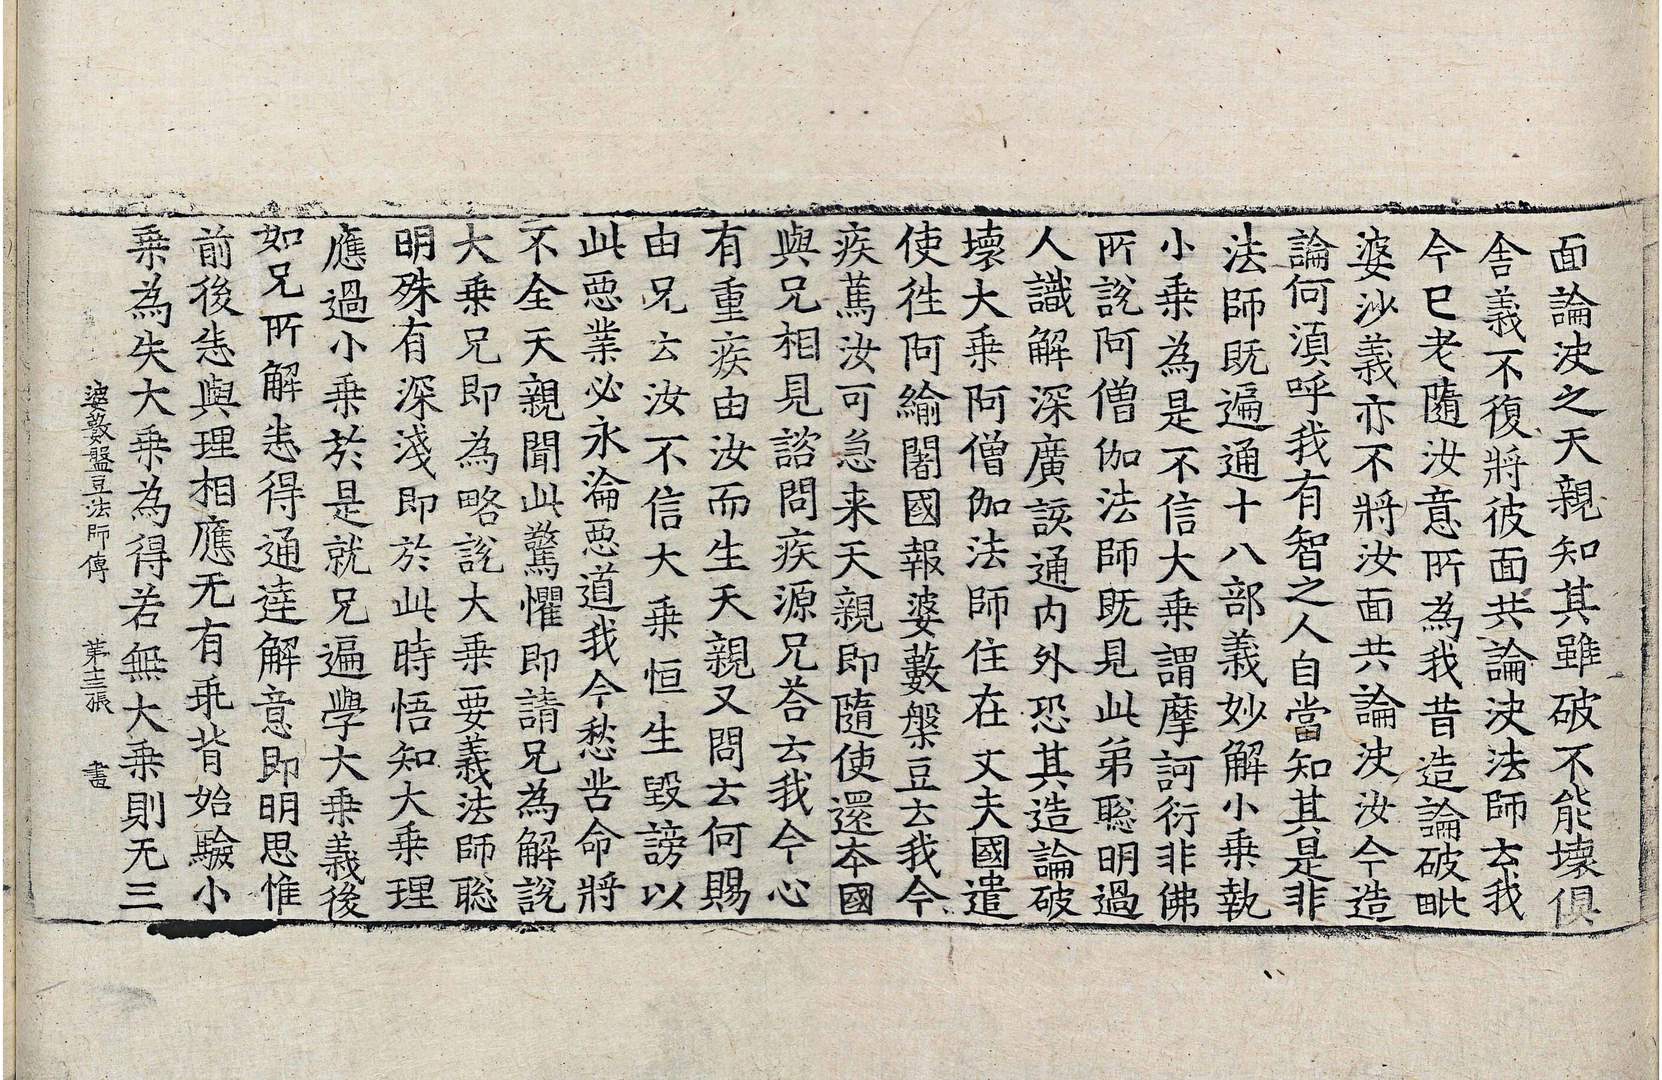 面論决之天親知其雖破不能壞俱
舍義不復將彼面共論决法師去我
今已老隨汝意所為我昔造論破毗
婆沙義亦不將汝面共論决汝今造
論何須呼我有智之人自當知其是非
法師既遍通十八部義妙解小乗執
小乗為是不信大乗謂摩訶衍非佛
所說阿僧伽法師既見此弟聡明過
人識解深廣該通内外恐其造論破
壞大乗阿僧伽法師住在丈夫國遣
使徃阿緰闍國報婆藪槃豆去我今
疾萬汝可急来天親即隨使還本國
與兄相見諮問疾源兄荅去我今心
有重疾由汝而生天親又問去何賜
由兄云汝不信大乗恒生毀謗以
此惡業必永淪惡道我今愁苦命將
不全天親聞此驚懼即請兄為解說
大乗兄即為略說大乗要義法師聡
明殊有深淺即於此時悟知大乗理
應過小乗於是就兄遍學大乗義後
如兄所解悉得通達解意即明思惟
前後悉與理相應无有乖背始驗小
乗為失大乗為得若無大乗則无三
婆藪盤豆法師傳 第十三張 書